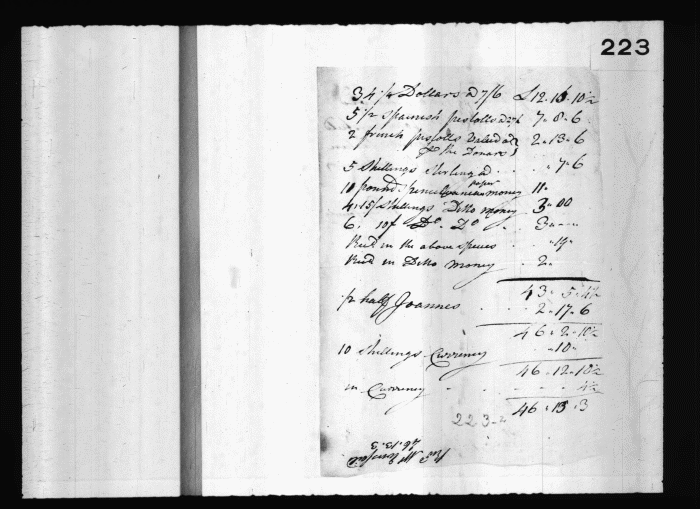 223
34 pr Dollars a 7/6 £12.16.10½
5 pr Spanish pistolls 7.8.6
2 french pistolls Valued 2.13.6
5 Shillings Sterling ad .. 7.6
10 pound paper money 11..
4.15/ Shillings Ditto money 3.00
6. 10/ Do. Do 3....
Recd in the above species .. 19..
Recd in Ditto money .. 2..
43.5.4½
pr half Joannes .. 2.17.6
46.2.10½
10 Shillings Currency ..10..
46.12.10½
in Currency .. 4½
46.13.3
223-2
46.13.3